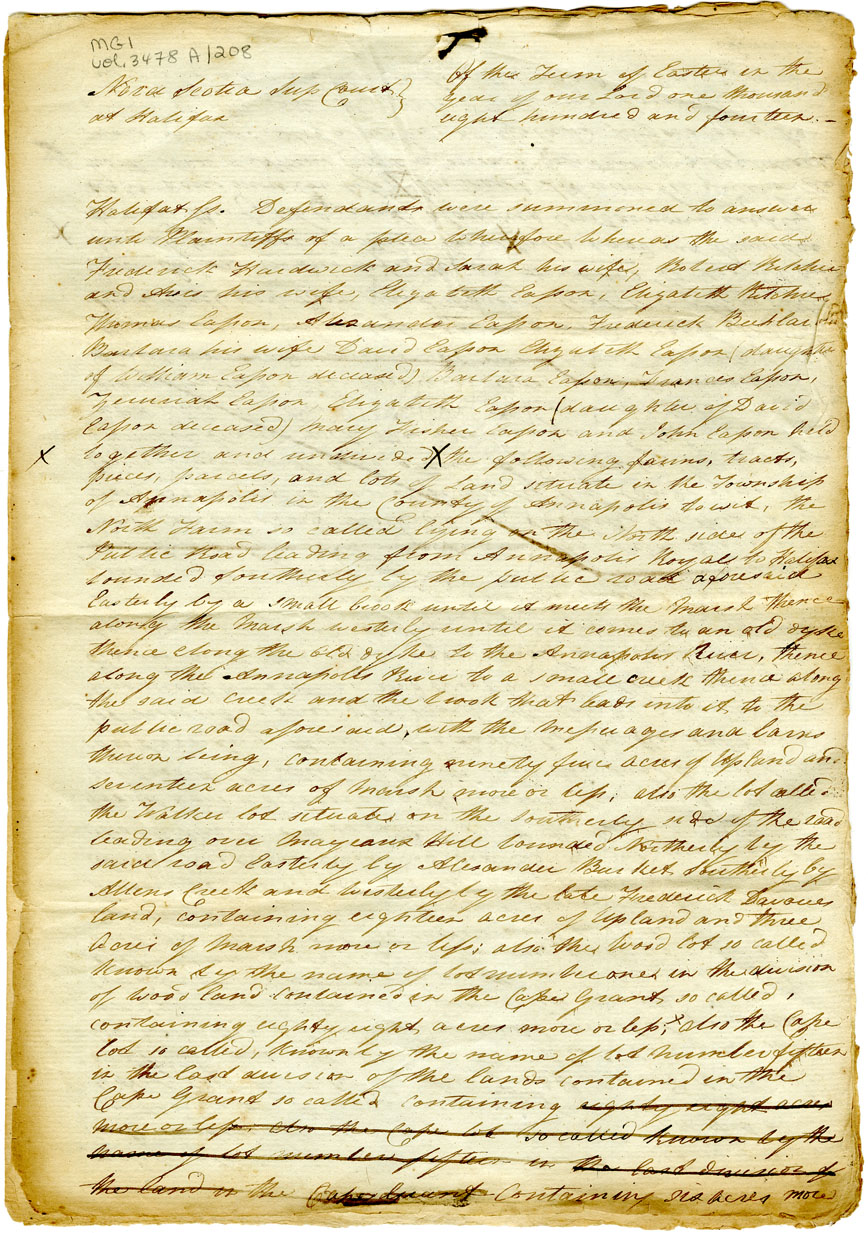 MG1
vol. 3478 A/208
Nova Scotia Sup Court }
at Halifax
Of the Term of Easter in the
year of our Lord one thousand
eight hundred and fourteen. -
Halifax Ss. Defendants were summoned to answer
unto Plaintiffs of a plea wherefore whereas the said
Frederick Hardwick and Sarah his wife, Robert Ritchie
and Avis his wife, Elizabeth Eason, Elizabeth Ritchie
Thomas Eason, Alexander Eason, Frederick
Barbara his wife David Eason Elizabeth Eason (daughter
of William Eason deceased) Barbara Eason, Frances Eason,
Eason Elizabeth Eason (daughter of David
Eason deceased) Mary Fisher Eason and John Eason held
X together and undivided X the following farms, tracts,
pieces, parcels, and lots of Land situate in the Township
of Annapolis in the County of Annapolis towit, the
North Farm so called lying on the North side of the
Public Road leading from Annapolis Royal to Halifax
bounded Southerly by the public road aforesaid
Easterly by a small brook until it meets the Marsh thence
along the Marsh westerly until it comes to an old dyke
thence along the old dyke to the Annapolis River, thence
along the Annapolis River to a small creek thence along
the said Creek and the brook that leads into it to the
public road aforesaid, with the Messuages and barns
thereon being, containing ninety five acres of Upland and
seventeen acres of Marsh more or less; also the lot called
the Walker lot situate on the Southerly side of the road
leading over Hill bounded Northerly by the
said road Easterly by Alexander Burket Southerly by
Allens Creek and Westerly by the late Frederick
land, containing eighteen acres of Upland and three
Acres of Marsh more or less; also the Wood lot so called
known by the name of lot number one in the division
of wood land contained in the Cape Grant so called,
containing eighty eight acres more or less; x also the Cape
lot so called, known by the name of lot number fifteen
in the last division of the lands contained in the
Cape Grant so called containing eighty eight acres
more or less, also the Cape lot so called known by the
name of lot number fifteen in the last division of
the land in the Cape Grant containing six acres more